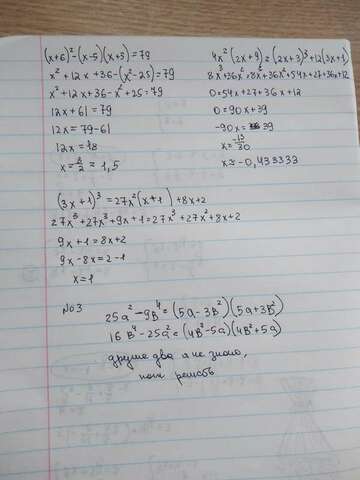 (x+6)²-(x-5)(x+5)=79
x²+12x+36-(x²-25)=79
x²+12x+36-x²+25=79
12x+61=79
12x=79-61
12x=18
x=3/2=1,5
4x²(2x+9)=(2x+3)³+12(3x+1)
8x³+36x²=8x³+36x²+54x+27+36x+12
0=54x+27+36x+12
0=90x+39
-90x=39
x=-13/30
x≈-0,433333
(3x+1)³=27x²(x+1)+8x+2
27x³+27x²+9x+1=27x³+27x²+8x+2
9x+1=8x+2
9x-8x=2-1
x=1
№3
25a²-9b⁴=(5a-3b²)(5a+3b²)
16b⁴-25a²=(4b²-5a)(4b²+5a)
другие два я не знаю,